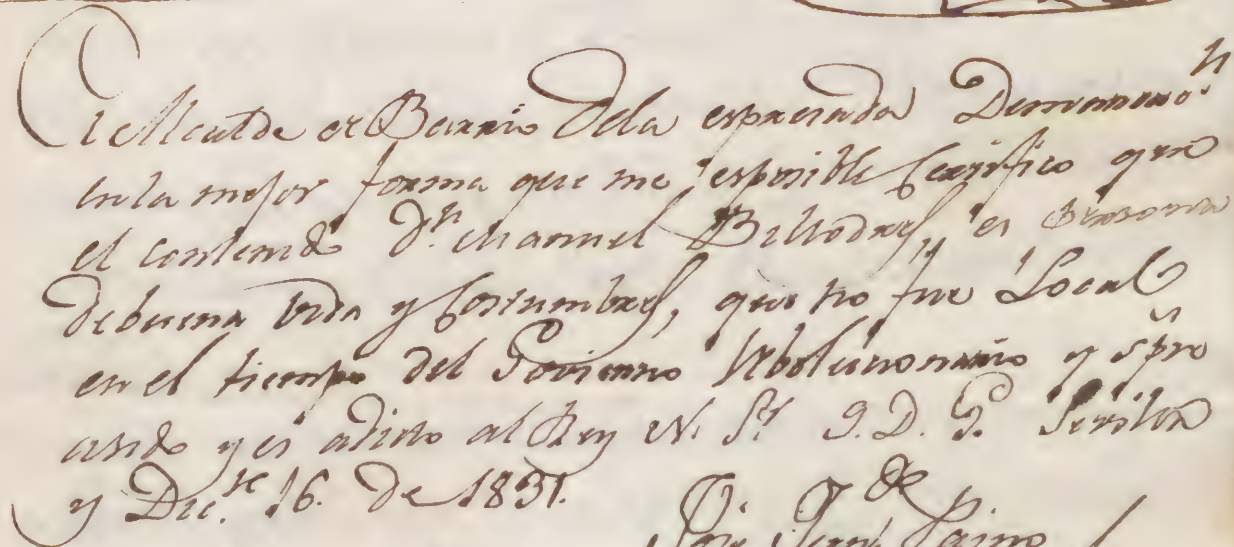 El Alcalde de Barrio dela espresada Demarcaco.n
enla mejor forma que me esposible Certifico que
el contenido D.n Manuel Billodres, es Persona
debuena vida y Costumbres, que no fue Local
en el tiempo del Govierno Rebolucionario y spre
asido y es adicto al Rey N. Sr. Q.D.G. Sevilla
y Dic.re 16. de 1831.
José